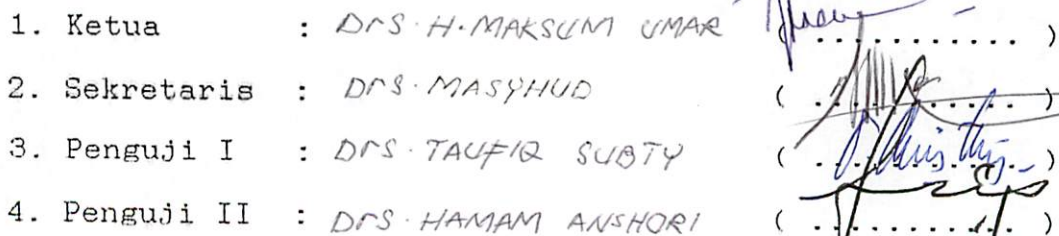 1. Ketua : Drs. H. MAKSUM UMAR ( ............ )
2. Sekretaris : Drs. MASYHUD ( ............ )
3. Penguji I : Drs. TAUFIQ SUBTY ( ............ )
4. Penguji II : Drs. HAMAM ANSHORI ( ............ )